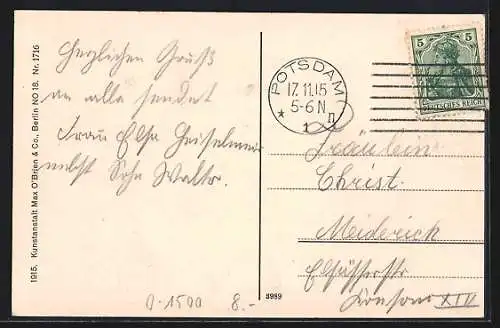 Herzlichen Gruß
an alle sendet
Frau Else
nebst Sohn Walter.
1915. Kunstanstalt Max O'Brien & Co., Berlin NO 18. Nr. 1716
POTSDAM
17.11.15
5-6 N
* 1 n
5 5
DEUTSCHES REICH
Fräulein
Christ.
Meiderich
Elsässerstr.
XIV
0-1500 8.-
8989